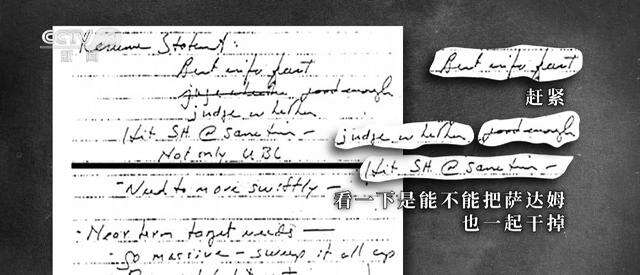 CCTV
新闻
Resume Statement:
Best info fast
judge whether good enough
judge whether
Hit SH @ same time –
Not only UBL
- Need to move swiftly –
- Near term target needs —
- go massive – sweep it all up
Best info fast
赶紧
judge whether good enough
Hit SH @ same time –
看一下是能不能把萨达姆
也一起干掉